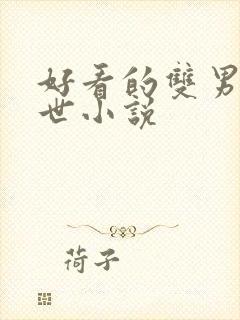 好看的雙男
世小說
荷子